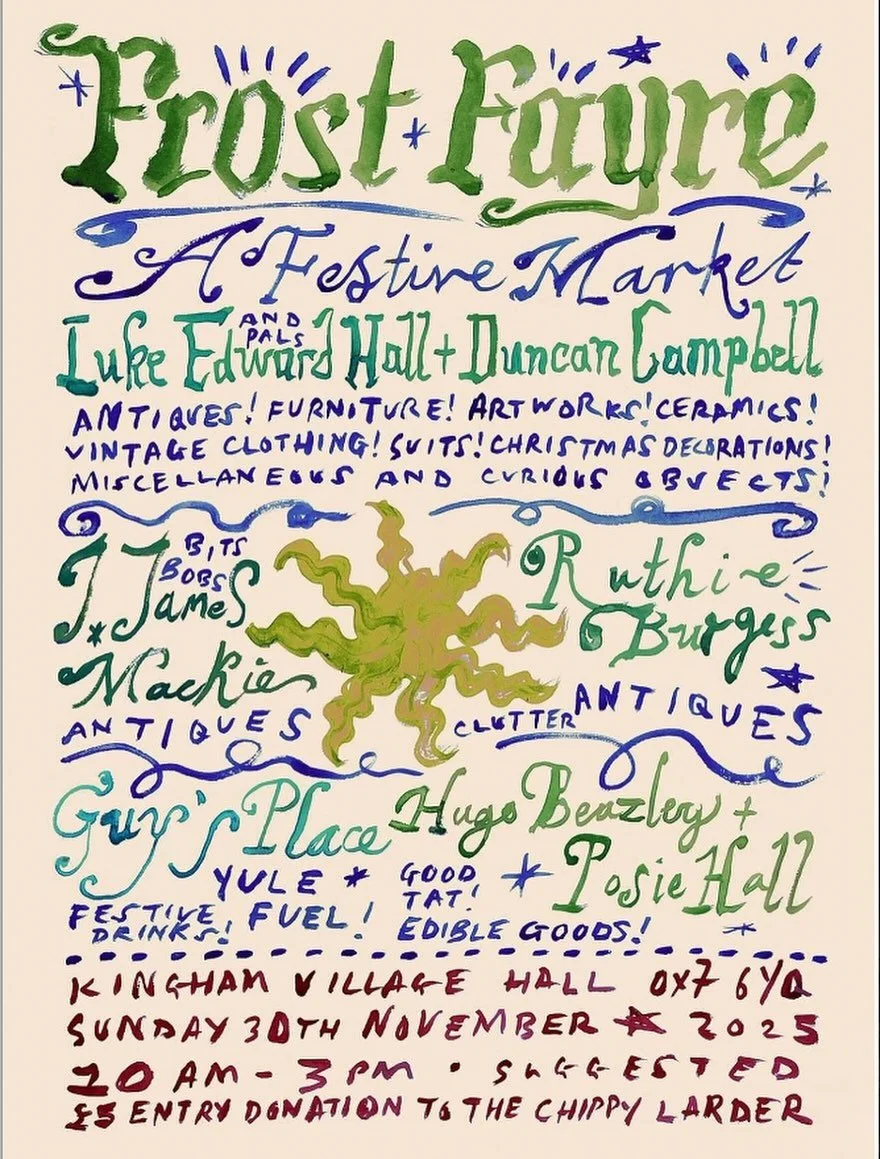 Frost Fayre
A Festive Market
AND PALS
Luke Edward Hall + Duncan Campbell
ANTIQUES! FURNITURE! ARTWORKS! CERAMICS!
VINTAGE CLOTHING! SUITS! CHRISTMAS DECORATIONS!
MISCELLANEOUS AND CURIOUS OBJECTS!
BITS
BOBS
J. James
Mackie
ANTIQUES
Ruthie
Burgess
CLUTTER ANTIQUES
Guy's Place
YULE
FESTIVE
DRINKS! FUEL!
Hugo Beazley +
Posie Hall
GOOD
TAT!
EDIBLE GOODS!
KINGHAM VILLAGE HALL OX7 6YQ
SUNDAY 30TH NOVEMBER 2025
10 AM - 3 PM · SUGGESTED
£5 ENTRY DONATION TO THE CHIPPY LARDER